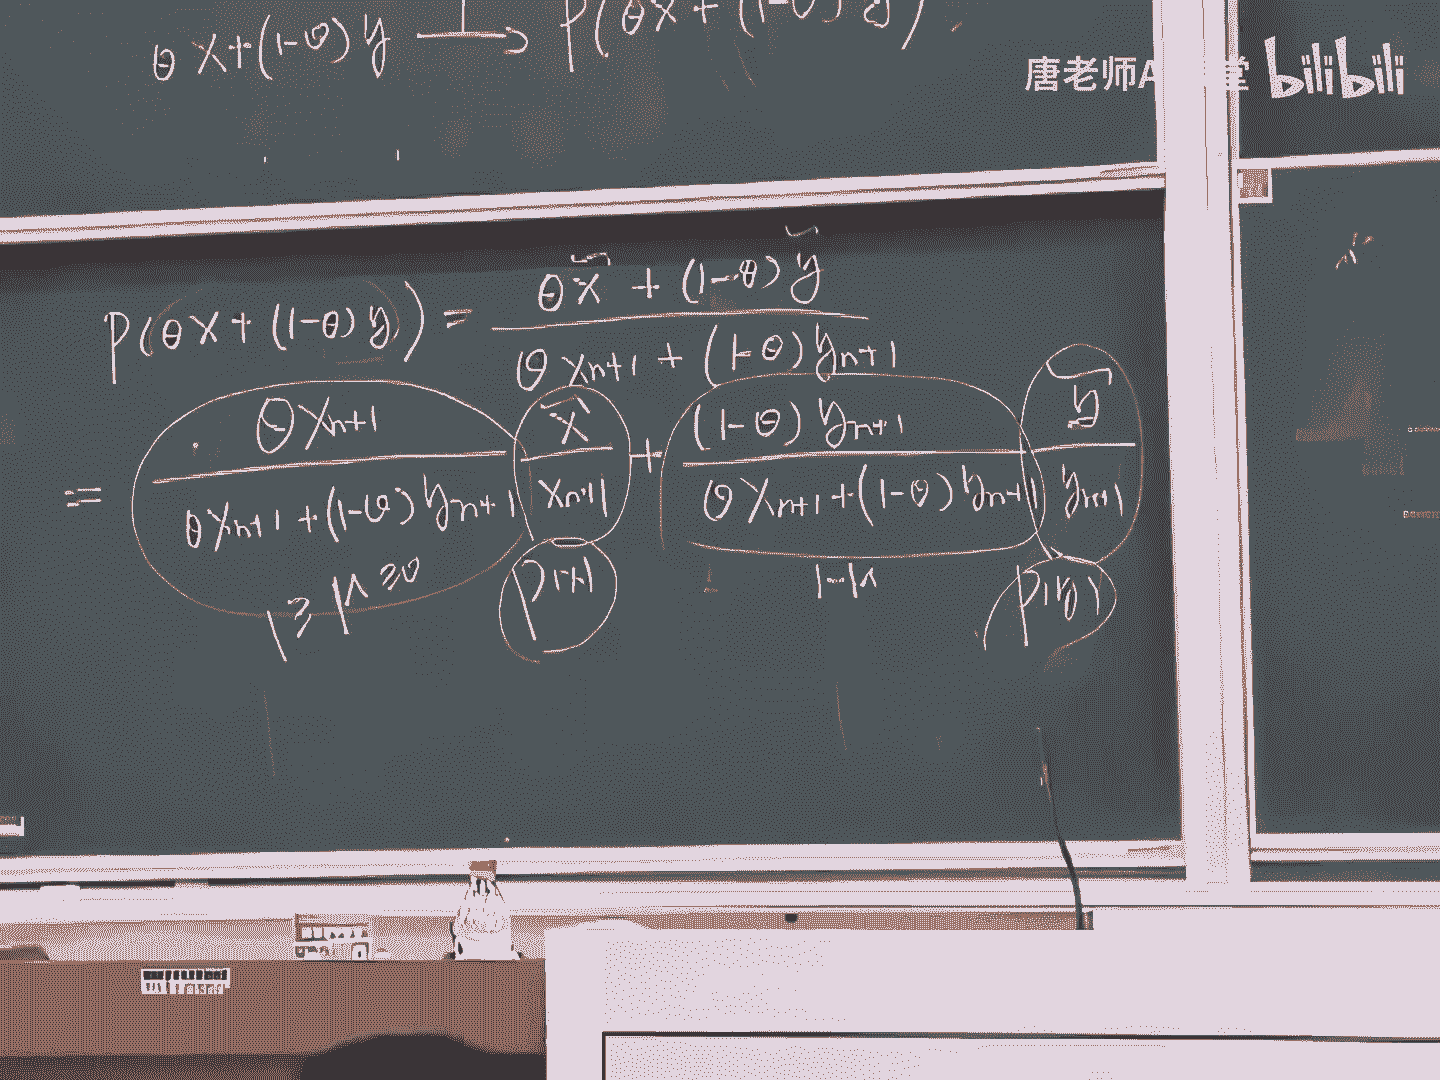 θx+(1-θ)y → P(θx+(1-θ)y)
唐老师A 堂 bilibili
P(θx+(1-θ)y) = \frac{θ\tilde{x} + (1-θ)\tilde{y}}{θx_{n+1} + (1-θ)y_{n+1}}
= \frac{θx_{n+1}}{θx_{n+1}+(1-θ)y_{n+1}} \frac{\tilde{x}}{x_{n+1}} + \frac{(1-θ)y_{n+1}}{θx_{n+1}+(1-θ)y_{n+1}} \frac{\tilde{y}}{y_{n+1}}
1≥μ≥0 P(x) 1-μ P(y)